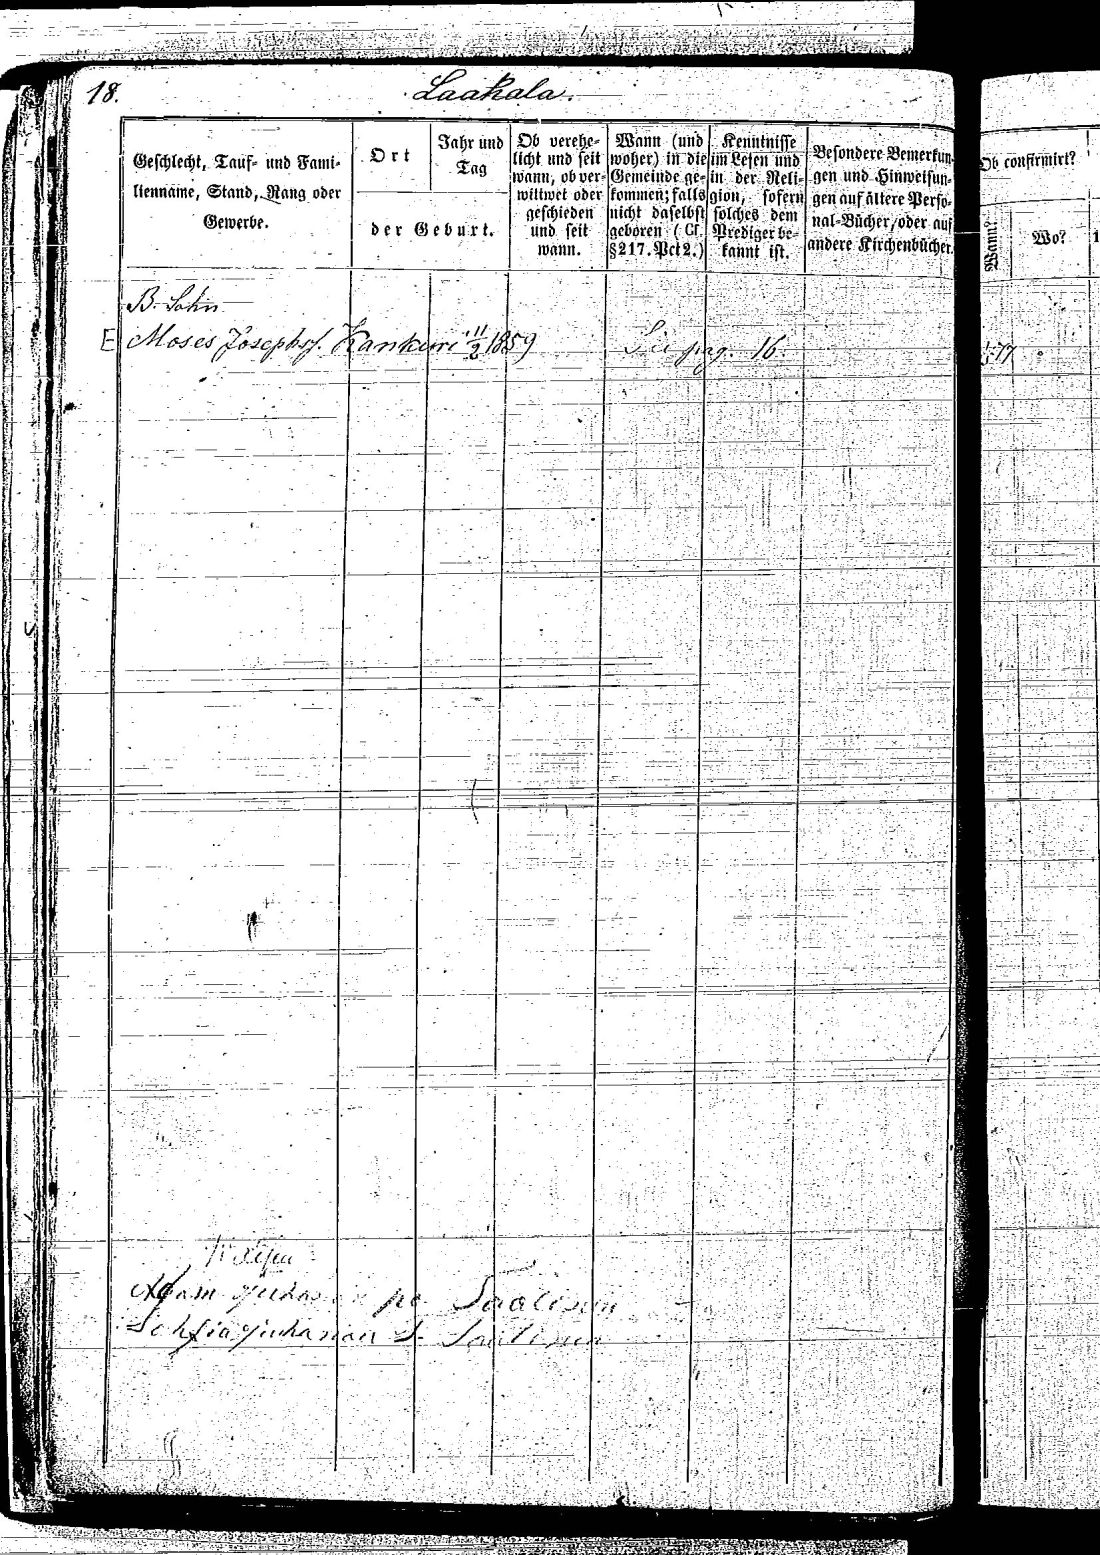 18.
Laakala.
Geschlecht, Tauf- und Fami-
lienname, Stand, Rang oder
Gewerbe.
Ort
Jahr und
Tag
der Geburt.
Ob verehe-
licht und seit
wann, ob ver-
wittwet oder
geschieden
und seit
wann.
Wann (und
woher) in die
Gemeinde ge-
kommen; falls
nicht daselbst
geboren (Cf.
§217. Pct 2.)
Kenntnisse
im Lesen und
in der Reli-
gion, sofern
solches dem
Prediger be-
kannt ist.
Besondere Bemerkun-
gen und Hinweisun-
gen auf ältere Perso-
nal-Bücher, oder auf
andere Kirchenbücher.
Ob confirmirt?
Wann?
Wo?
B. Sohn
E Moses Josephs. Kankuri 11/2 1859 Sie pag. 16.
77
Adam
Saalisen